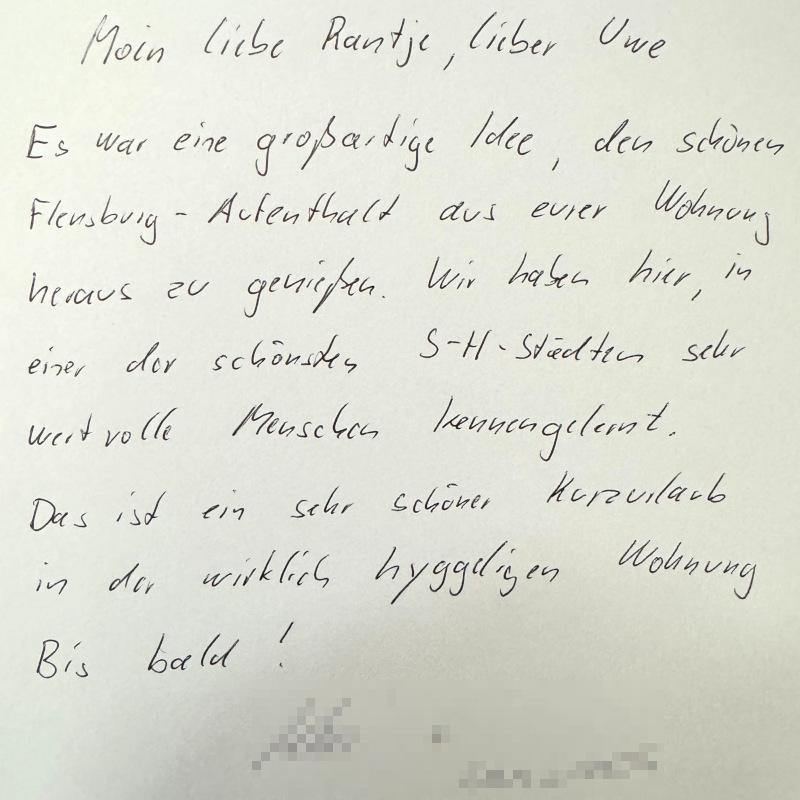 Moin liebe Rantje, lieber Uwe
Es war eine großartige Idee, den schönen
Flensburg-Aufenthalt aus eurer Wohnung
heraus zu genießen. Wir haben hier, in
einer der schönsten S-H-Städten sehr
wertvolle Menschen kennengelernt.
Das ist ein sehr schöner Kurzurlaub
in der wirklich hyggeligen Wohnung
Bis bald!